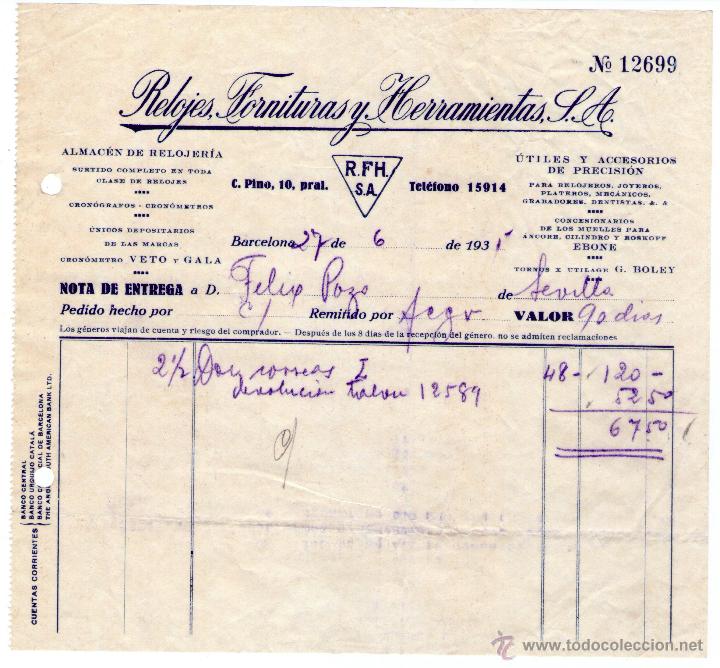 Nº 12699
Relojes, Fornituras y Herramientas, S.A.
ALMACÉN DE RELOJERÍA
SURTIDO COMPLETO EN TODA
CLASE DE RELOJES
CRONÓGRAFOS - CRONÓMETROS
ÚNICOS DEPOSITARIOS
DE LAS MARCAS
CRONÓMETRO VETO Y GALA
C. Pino, 10, pral.
R.FH.
S.A.
Teléfono 15914
ÚTILES Y ACCESORIOS
DE PRECISIÓN
PARA RELOJEROS, JOYEROS,
PLATEROS, MECÁNICOS,
GRABADORES, DENTISTAS, &. &
CONCESIONARIOS
DE LOS MUELLES PARA
ANCORE, CILINDRO Y ROSKOFF
EBONE
TORNOS X UTILAGE G. BOLEY
Barcelona 27 de 6 de 193
NOTA DE ENTREGA a D. Felix Pozo de Sevilla
Pedido hecho por Remitido por VALOR 90 dias
Los géneros viajan de cuenta y riesgo del comprador. — Después de los 8 días de la recepción del género, no se admiten reclamaciones
2 1/2 Doz correas I 48 - 120 -
devolución talon 12589 52 50
67 50
CUENTAS CORRIENTES
BANCO CENTRAL
BANCO URQUIJO CATALÁ
BANCO CIAL DE BARCELONA
THE ANG SOUTH AMERICAN BANK LTD.
www.todocoleccion.net